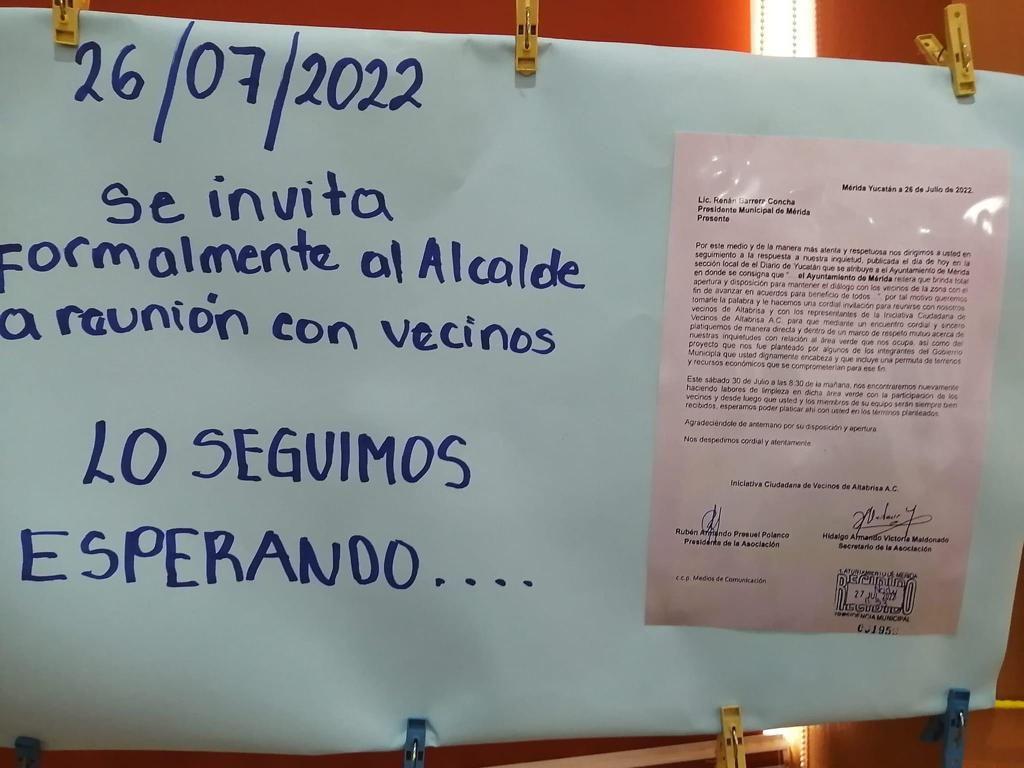 26/07/2022
Se invita
Formalmente al Alcalde
a reunión con vecinos
LO SEGUIMOS
ESPERANDO....
Mérida Yucatán a 26 de Julio de 2022.
Lic. Renán Barrera Concha
Presidente Municipal de Mérida
Presente
Por este medio y de la manera más atenta y respetuosa nos dirigimos a usted en
seguimiento a la respuesta a nuestra inquietud, publicada el día de hoy en la
sección local de el Diario de Yucatán que se atribuye a el Ayuntamiento de Mérida
en donde se consigna que "... el Ayuntamiento de Mérida reitera que brinda total
apertura y disposición para mantener el diálogo con los vecinos de la zona con el
fin de avanzar en acuerdos para beneficio de todos ...", por tal motivo queremos
tomarle la palabra y le hacemos una cordial invitación para reunirse con nosotros
vecinos de Altabrisa y con los representantes de la Iniciativa Ciudadana de
Vecinos de Altabrisa A.C. para que mediante un encuentro cordial y sincero
platiquemos de manera directa y dentro de un marco de respeto mutuo acerca de
nuestras inquietudes con relación al área verde que nos ocupa, así como del
proyecto que nos fue planteado por algunos de los integrantes del Gobierno
Municipla que usted dignamente encabeza y que incluye una permuta de terrenos
y recursos económicos que se comprometerían para ese fin.
Este sábado 30 de Julio a las 8:30 de la mañana, nos encontraremos nuevamente
haciendo labores de limpieza en dicha área verde con la participación de los
vecinos y desde luego que usted y los miembros de su equipo serán siempre bien
recibidos, esperamos poder platicar ahí con usted en los términos planteados.
Agradeciéndole de antemano por su disposición y apertura.
Nos despedimos cordial y atentamente.
Iniciativa Ciudadana de Vecinos de Altabrisa A.C.
Rubén Armando Presuel Polanco
Presidente de la Asociación
Hidalgo Armando Victoria Maldonado
Secretario de la Asociación
c.c.p. Medios de Comunicación
AYUNTAMIENTO DE MÉRIDA
RECIBIDO
27 JUL 2022
RECIBIDO
MUNICIPAL